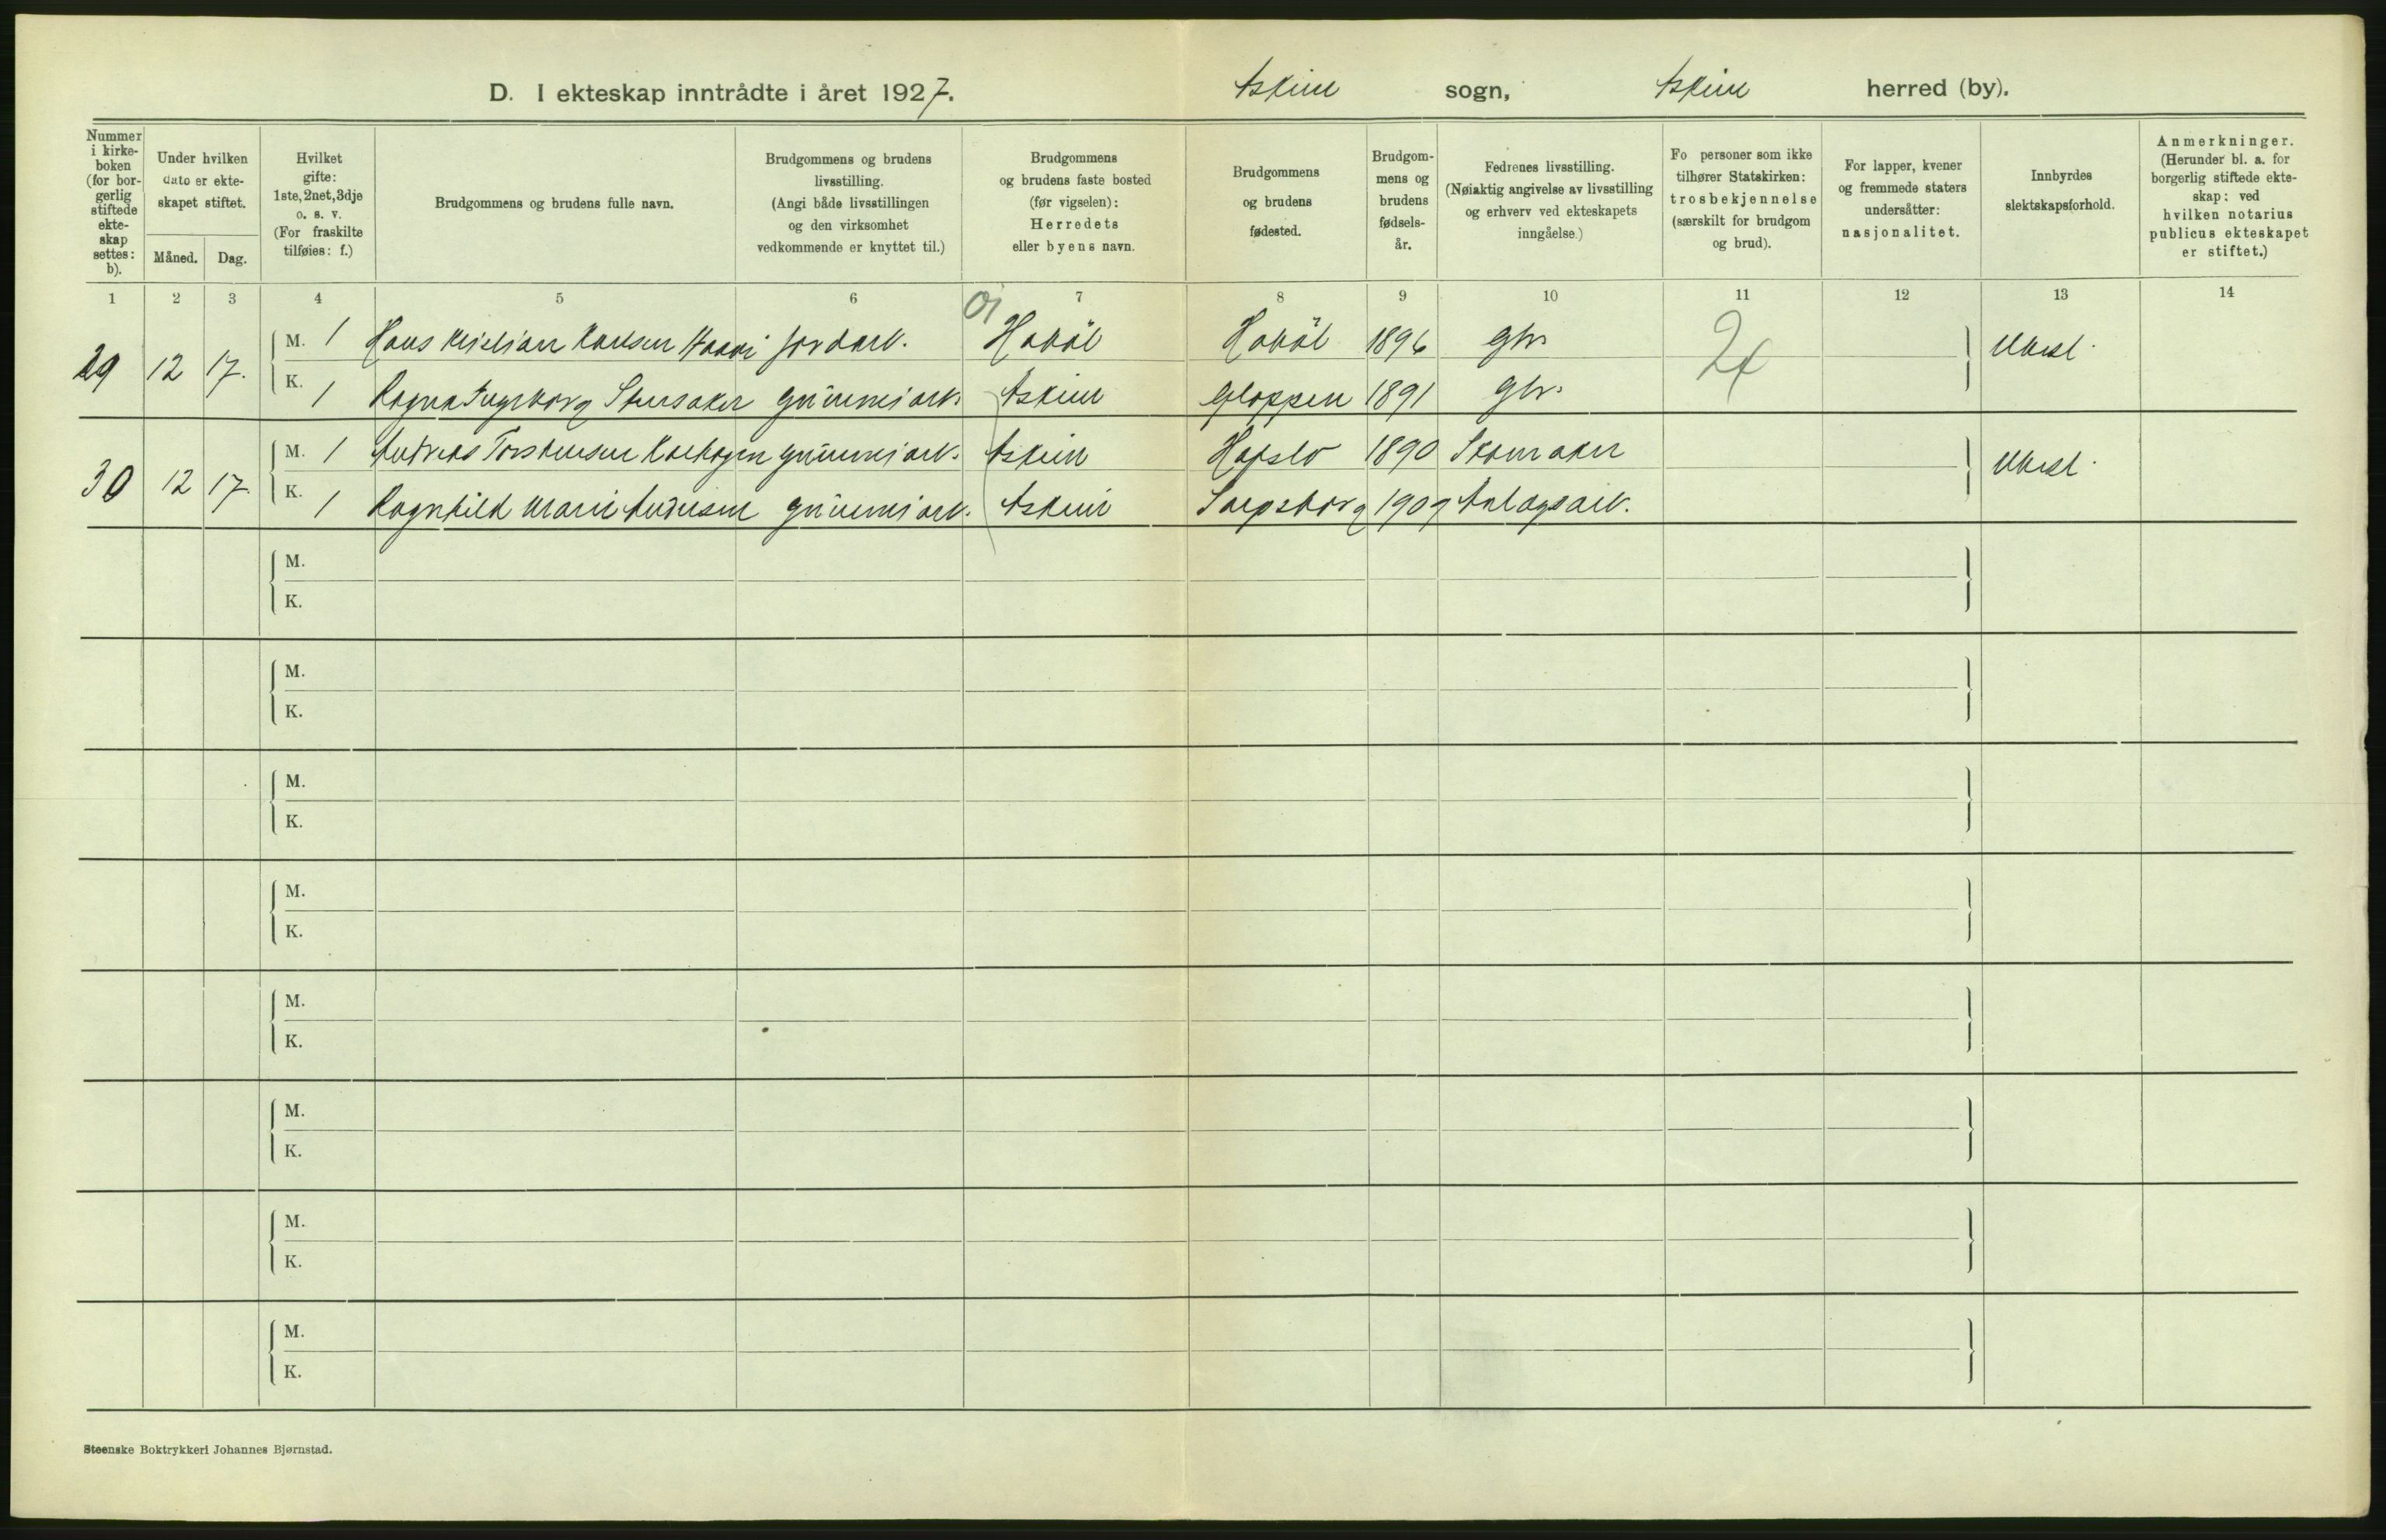 D. I ekteskap inntrådte i året 1927. Askim sogn, Askim herred (by).
Nummer i kirke-boken (for bor-gerlig stiftede ekte-skap settes: b).
Under hvilken dato er ekte-skapet stiftet.
Måned. Dag.
Hvilket gifte: 1ste, 2net, 3dje o. s. v. (For fraskilte tilføies: f.)
Brudgommens og brudens fulle navn.
Brudgommens og brudens livsstilling. (Angi både livsstillingen og den virksomhet vedkommende er knyttet til.)
Brudgommens og brudens faste bosted (før vigselen): Herredets eller byens navn.
Brudgommens og brudens fødested.
Brudgom-mens og brudens fødsels-år.
Fedrenes livsstilling. (Nøiaktig angivelse av livsstilling og erhverv ved ekteskapets inngåelse.)
Fo personer som ikke tilhører Statskirken: trosbekjennelse (særskilt for brudgom og brud).
For lapper, kvener og fremmede staters undersåtter: nasjonalitet.
Innbyrdes slektskapsforhold.
Anmerkninger. (Herunder bl. a. for borgerlig stiftede ekte-skap: ved hvilken notarius publicus ekteskapet er stiftet.)
1 2 3 4 5 6 7 8 9 10 11 12 13 14
29 12 17. M. 1 Hans Kristian Karlsen Haavi jordarb. Hobøl Hobøl 1896 gbr. Ubesl.
K. 1 Ragna Ingeborg Stensaker gummiarb. Askim Gloppen 1891 gbr.
30 12 17. M. 1 Andreas Torstensen gummiarb. Askim Hafslo 1890 Skomaker Ubesl.
K. 1 Ragnhild Marie Andersen gummiarb. Askim Sarpsborg 1909 Anlægsarb.
M.
K.
M.
K.
M.
K.
M.
K.
M.
K.
M.
K.
M.
K.
M.
K.
Steenske Boktrykkeri Johannes Bjørnstad.